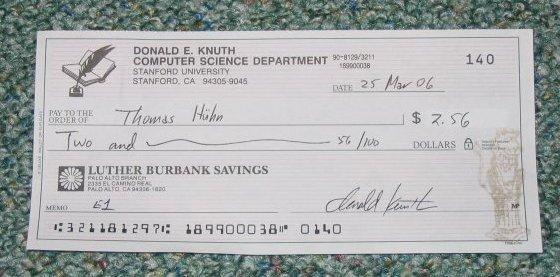 DONALD E. KNUTH
COMPUTER SCIENCE DEPARTMENT
STANFORD UNIVERSITY
STANFORD, CA 94305-9045
90-8129/3211
189900038
140
DATE 25 Mar 06
PAY TO THE
ORDER OF Thomas Hühn $ 2.56
Two and 56/100 DOLLARS
LUTHER BURBANK SAVINGS
PALO ALTO BRANCH
2335 EL CAMINO REAL
PALO ALTO, CA 94306-1620
MEMO £1 Donald Knuth
MP
⑆321181297⑆ 189900038⑈ 0140